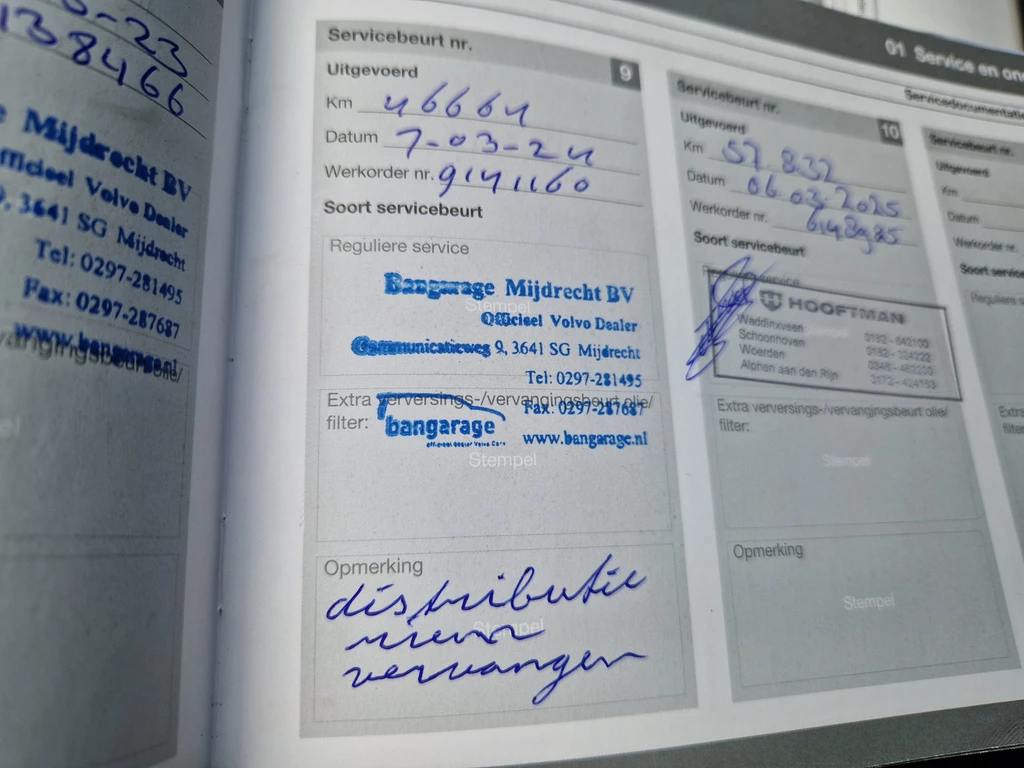 -23
138466
Mijdrecht BV
Officieel Volvo Dealer
9, 3641 SG Mijdrecht
Tel: 0297-281495
Fax: 0297-287687
www.bangarage.nl
Servicebeurt nr.
9
Uitgevoerd
Km 46664
Datum 7-03-24
Werkorder nr. 9141160
Soort servicebeurt
Reguliere service
Stempel
Bangarage Mijdrecht BV
Officieel Volvo Dealer
Communicatieweg 9, 3641 SG Mijdrecht
Tel: 0297-281495
Fax: 0297-287687
www.bangarage.nl
Extra verversings-/vervangingsbeurt olie/
filter:
bangarage
officieel dealer Volvo Cars
Stempel
Opmerking
Stempel
distributie
riem
vervangen
01 Service en
Servicedocumentatie
Servicebeurt nr.
10
Uitgevoerd
Km 57.832
Datum 06.03.2025
Werkorder nr.
Soort servicebeurt
HOOFTMAN
Waddinxveen
Schoonhoven
Woerden
Alphen aan den Rijn
Extra verversings-/vervangingsbeurt olie/
filter:
Stempel
Opmerking
Stempel
Servicebeurt nr.
Uitgevoerd
Km
Datum
Werkorder nr.
Soort
Reguliere
Extra
filter: